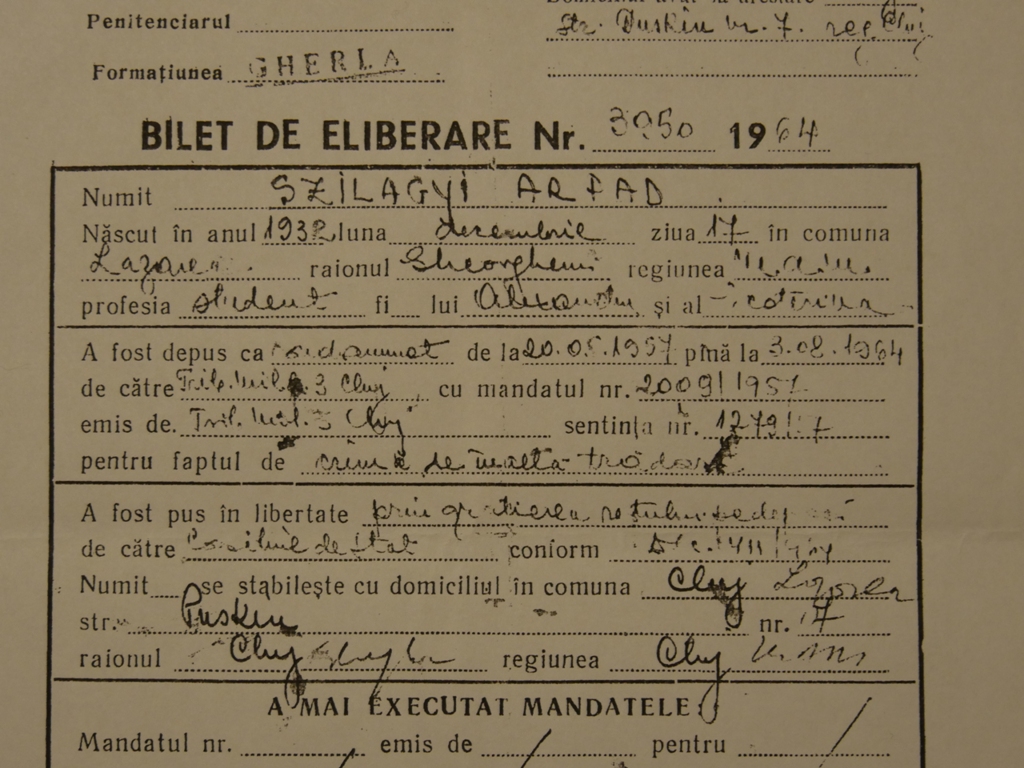 Domiciliul avut la arestare
Penitenciarul
str. Puskin nr. 7. reg. Cluj
Formațiunea GHERLA
BILET DE ELIBERARE Nr. 3950 1964
Numit SZILAGYI ARPAD
Născut în anul 1932 luna decembrie ziua 17 în comuna
Lazarea raionul Gheorgheni regiunea
profesia student fi lui Alexandru și al
A fost depus ca condamnat de la 20.05.1957 pînă la 3.08.1964
de către Trib. Mil. 3 Cluj cu mandatul nr. 2009/1957
emis de Trib. Mil. 3 Cluj sentința nr.
pentru faptul de crimă de înaltă trădare
A fost pus în libertate prin grațierea
de către Consiliul de Stat conform
Numit se stabilește cu domiciliul în comuna Cluj Lazarea
str. Puskin nr. 7
raionul Cluj regiunea Cluj
A MAI EXECUTAT MANDATELE:
Mandatul nr. / emis de / pentru /